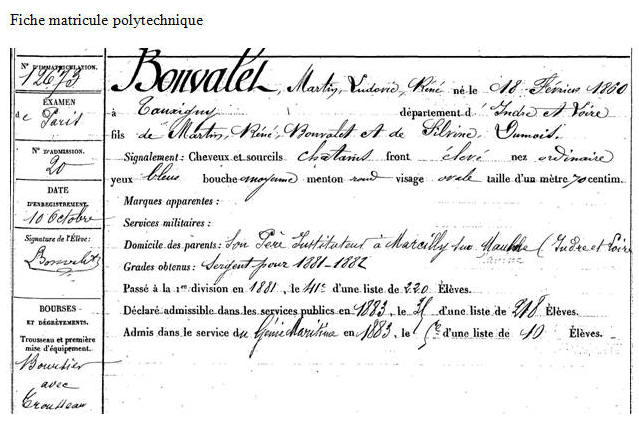 Fiche matricule polytechnique
N° D'IMMATRICULATION.
12673
EXAMEN
de Paris
N° D'ADMISSION.
20
DATE
D'ENREGISTREMENT.
10 Octobre
Signature de l'Élève:
Bonvalet
BOURSES
ET DÉGRÈVEMENTS.
Trousseau et première
mise d'équipement.
Boursier
avec
Trousseau
Bonvalet, Martin, Ludovic, René né le 18 Février 1860
à Tauxigny département d' Indre et Loire
fils de Martin, René, Bonvalet et de Silvine, Dumois
Signalement: Cheveux et sourcils chatains front élevé nez ordinaire
yeux bleus bouche moyenne menton rond visage ovale taille d'un mètre 70 centim.
Marques apparentes:
Services militaires:
Domicile des parents: Son Père Instituteur à Marcilly sur (Indre et Loire
Grades obtenus: Sergent pour 1881-1882
Passé à la 1re division en 1881, le 41e d'une liste de 220 Élèves.
Déclaré admissible dans les services publics en 1883, le d'une liste de 218 Élèves.
Admis dans le service du Génie Maritime en 1883, le d'une liste de 10 Élèves.